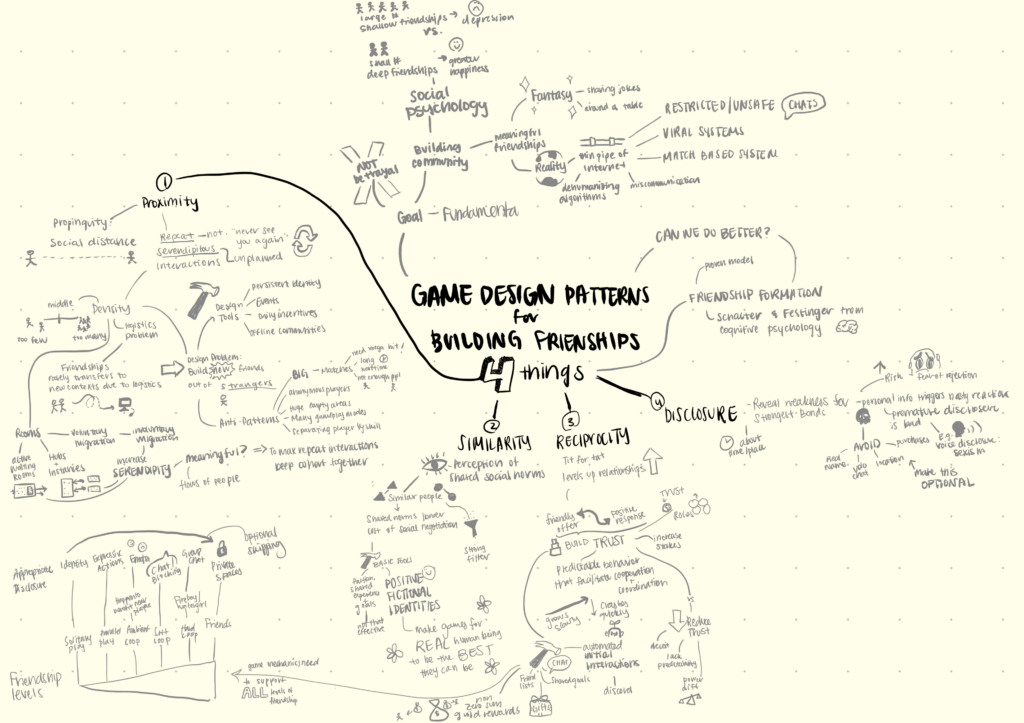 large #
shallow friendships → depression
vs.
small #
deep friendships → greater happiness
Social psychology
Building community
NOT betrayal
Goal - Fundamental
meaningful friendships
Fantasy
sharing jokes
around a table
Reality
thin pipe of internet
dehumanizing algorithms
miscommunication
RESTRICTED/UNSAFE CHATS
VIRAL SYSTEMS
MATCH BASED SYSTEM
CAN WE DO BETTER?
proven model
FRIENDSHIP FORMATION
Schauter & Festinger from
cognitive psychology
GAME DESIGN PATTERNS
for
BUILDING FRIENSHIPS
4 things
1
Proximity
Propinquity
Social distance
Repeat - not "never see you again"
serendipitous
interactions
unplanned
Density
middle
too few
too many
logistics problem
Friendships
rarely transfers to
new contexts due to logistics
Rooms
voluntary migration
involuntary migration
active
waiting
rooms
Hubs
instances
increase
SERENDIPITY
meaningful?
flows of people
→ To max repeat interactions
keep cohort together
Design Tools
persistent identity
Events
Daily incentives
offline communities
Design Problem:
Build new friends
out of strangers
Anti-Patterns
BIG Matches
anonymous players
Huge empty areas
Many gameplay modes
Separating player by skill
long waittime
not enough ppl
2
SIMILARITY
Perception of
shared social norms
Similar people
Shared norms lower
cost of social negotiation
strong filter
BASIC TOOL
shared experience
goals
not that effective
POSITIVE
FICTIONAL
IDENTITIES
make games for
REAL human being
to be the BEST
they can be
3
RECIPROCITY
Tit for tat
levels up relationships
friendly offer
positive response
TRUST
Roles
BUILD TRUST
increase stakes
Predictable behavior
that facilitate cooperation
coordination
grows slowly
crashes quickly
automated
initial
interactions
discord
CHAT
Friend lists
Shared goals
Gifts
non
zero sum
guild rewards
vs
Reduce
TRUST
deceit
lack
predictability
power diff
4
DISCLOSURE
Reveal weakness for
strongest bonds
about
time/place
Risk
fear of rejection
personal info triggers nasty reaction
premature disclosure
is bad
E.g.
voice disclosure:
sexism
AVOID
Real names
video chat
location
purchases
make this
OPTIONAL
Appropriate
Disclosure
Identity
Expressive
Actions
Emotes
Chat/
Blocking
Group chat
Private
Spaces
optional
skipping
Solitary play
Parallel Play
Ambient Loop
Soft Loop
Hard Loop
Friends
Friendship
levels
game mechanics need
to support
ALL levels of
friendship